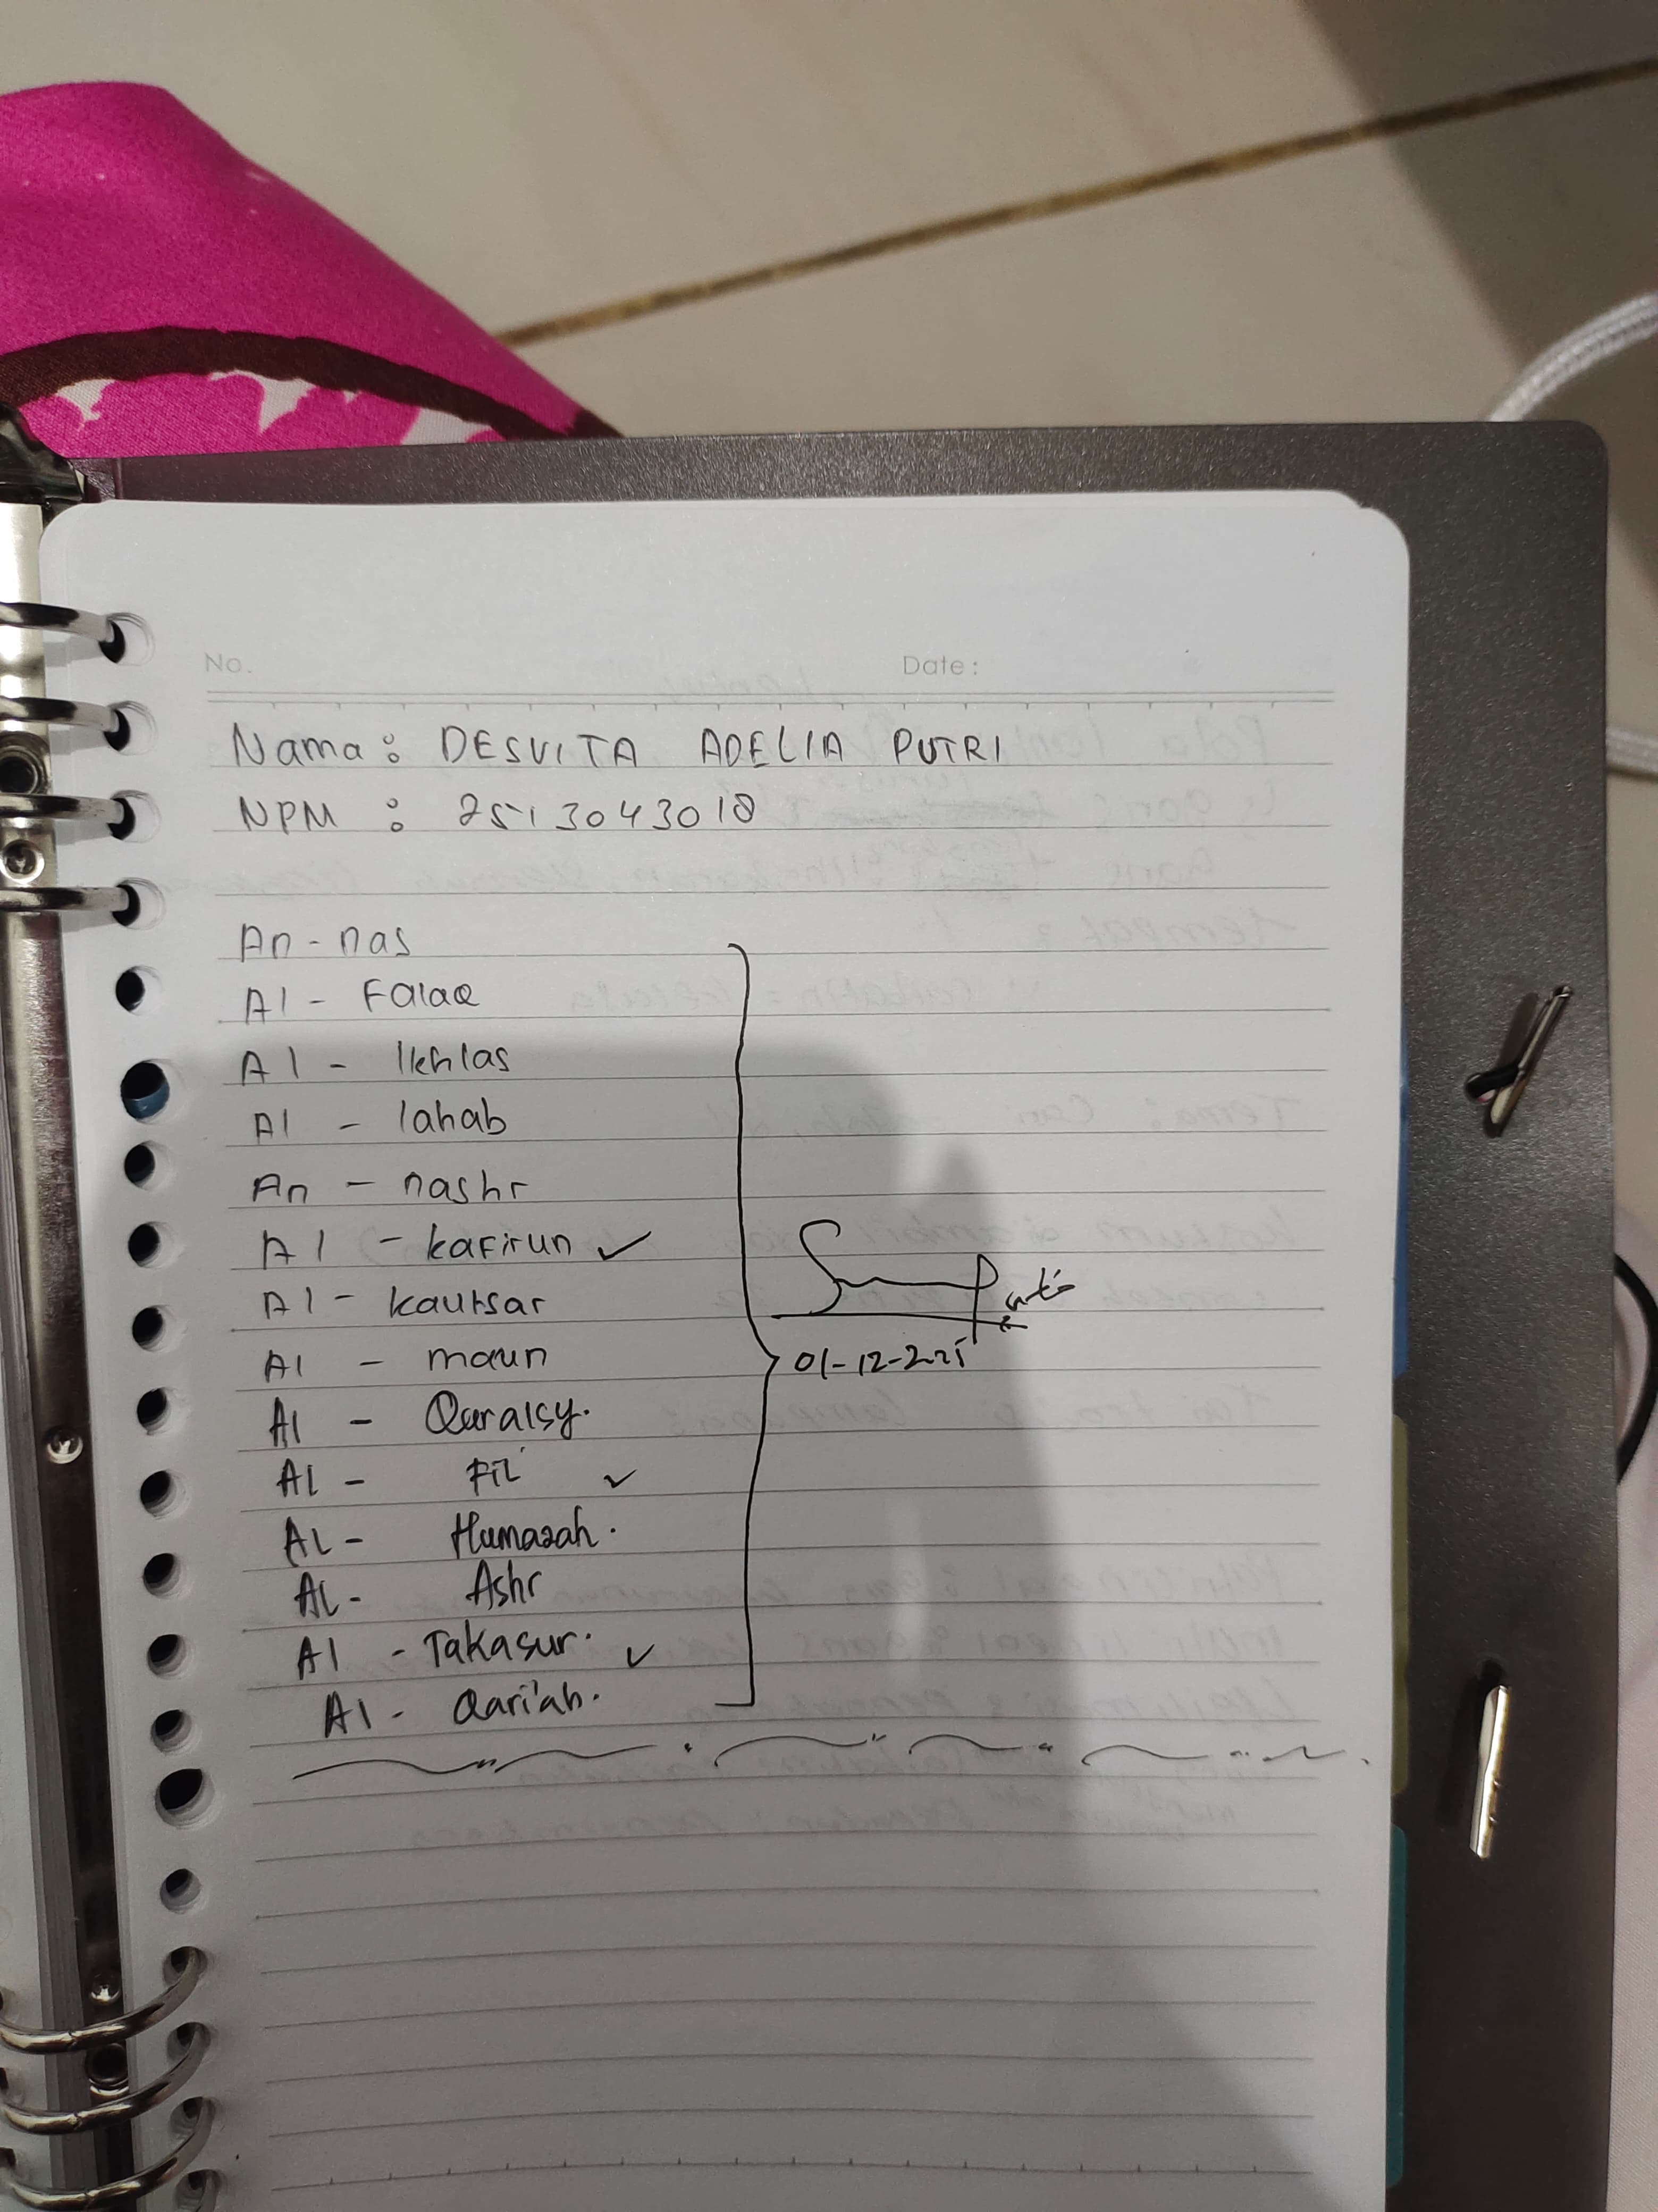 No.
Date:
Nama : DESVITA ADELIA PUTRI
NPM : 2513043018
An - nas
Al - Falaq
Al - Ikhlas
Al - lahab
An - nashr
Al - kafirun ✓
Al - kaursar
Al - maun
Al - Quraisy.
AL - Fil ✓
AL - Humazah.
AL - Ashr
Al - Takasur. ✓
Al - Qari'ah.
01-12-2025